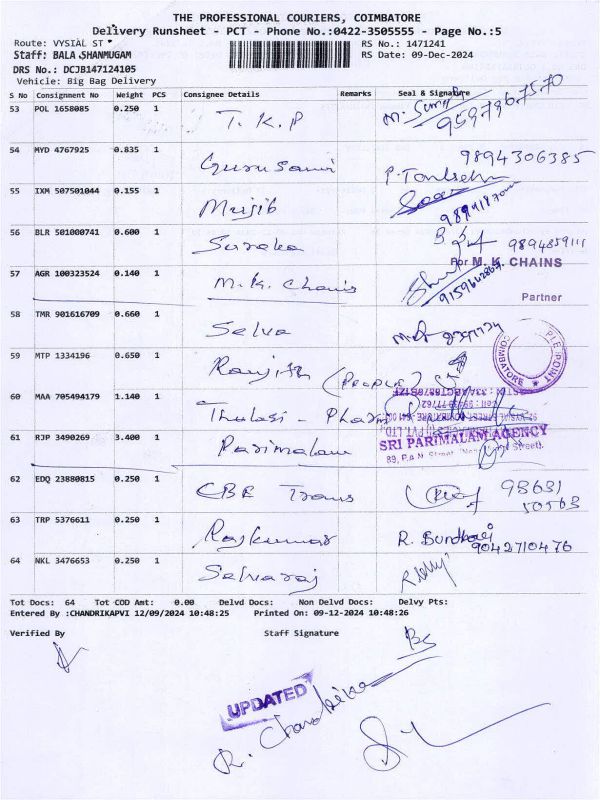 THE PROFESSIONAL COURIERS, COIMBATORE
Delivery Runsheet - PCT - Phone No.:0422-3505555 - Page No.:5
Route: VYSIAL ST
RS No.: 1471241
Staff: BALA SHANMUGAM
RS Date: 09-Dec-2024
DRS No.: DCJB147124105
Vehicle: Big Bag Delivery
S No Consignment No Weight PCS Consignee Details Remarks Seal & Signature
53 POL 1658085 0.250 1 T. K. P 9597967570
54 MYD 4767925 0.835 1 Gurusami 9894306385
55 IXM 507501044 0.155 1 Mujib
56 BLR 501000741 0.600 1 9894859111
For M. K. CHAINS
57 AGR 100323524 0.140 1 M.K. Chains 9159642867
Partner
58 TMR 901616709 0.660 1 Selva
59 MTP 1334196 0.650 1 Ranjith (People)
COIMBATORE
60 MAA 705494179 1.140 1 Thulasi - Pharm
61 RJP 3490269 3.400 1 Parimalam
SRI PARIMALAM AGENCY
89, P.A.N. Street,
62 EDQ 23880815 0.250 1 CBE Trans 98631 50563
63 TRP 5376611 0.250 1 Rajkumar 9042710476
64 NKL 3476653 0.250 1 Selvaraj
Tot Docs: 64 Tot COD Amt: 0.00 Delvd Docs: Non Delvd Docs: Delvy Pts:
Entered By :CHANDRIKAPVI 12/09/2024 10:48:25 Printed On: 09-12-2024 10:48:26
Verified By Staff Signature
UPDATED
R. Chandrika